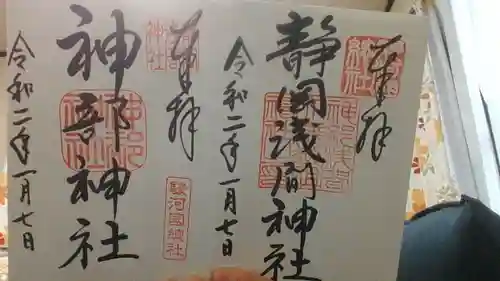 奉拝
静岡浅間神社
令和二年一月七日
奉拝
神部神社
駿河國総社
令和二年一月七日